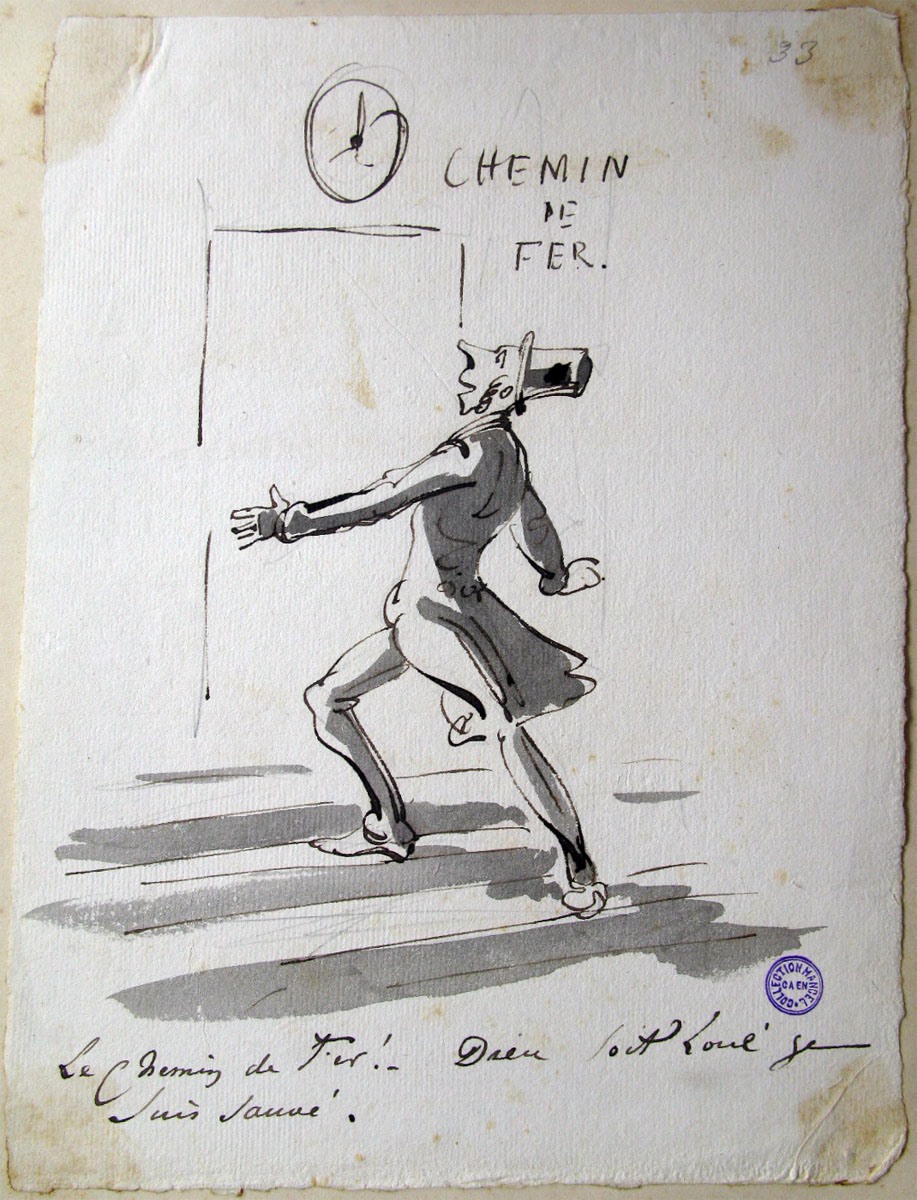 33
CHEMIN
DE
FER.
COLLECTION MANCEL
CAEN
Le Chemin de Fer!.. Dieu soit Loué je
suis sauvé.